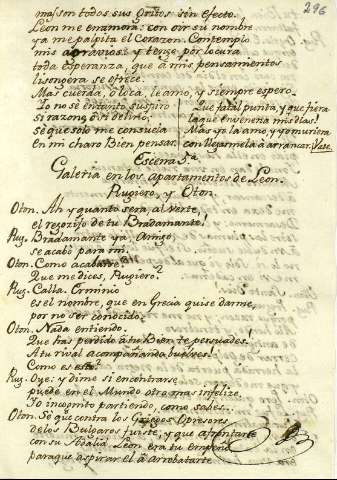 296
mas son todos sus gritos sin efecto.
Leon me enamora: con oir su nombre
ya me palpita el Corazon. Contemplo
mis agravios: y tengo por locura
toda Esperanza, que à mis pensamientos
lisongera se ofrece.
Mas cuerda, ò loca, le amo, y siempre espero.
Yo no sè entanto suspiro
si razon, ò si delirio,
sè que solo me consuela
en mi charo Bien pensar.
Que fatal punta, y que fiera
la que envenena mis dias!
Mas ya la amo, y yo muriera
con dejarmela à arrancar. Vase
Escena 5.ª
Galeria en los apartamentos de Leon.
Rugiero, y Oton.
Oton. Ah y quanto serà, al verte,
el regozijo de tu Bradamante!
Rug. Bradamante ya, Amigo,
se acabò para mi.
Oton. Como acabarse?
Que me dices, Rugiero?
Rug. Calla. Erminio
es el nombre, que en Grecia quise darme,
por no ser conocido.
Oton. Nada entiendo.
Que has perdido à tu Bien te persuades!
A tu rival acompañando buelves!
Como es esto?
Rug. Oye: y dime si encontrarse
puede en el Mundo otro mas infelize.
Yo incognito partiendo, como sabes..
Oton. Sè que contra los Griegos Opresores
de los Bulgaros fuiste; y que afrontarte
con su Adalid Leon era tu empeño
para que dispirar el à arrobatarte